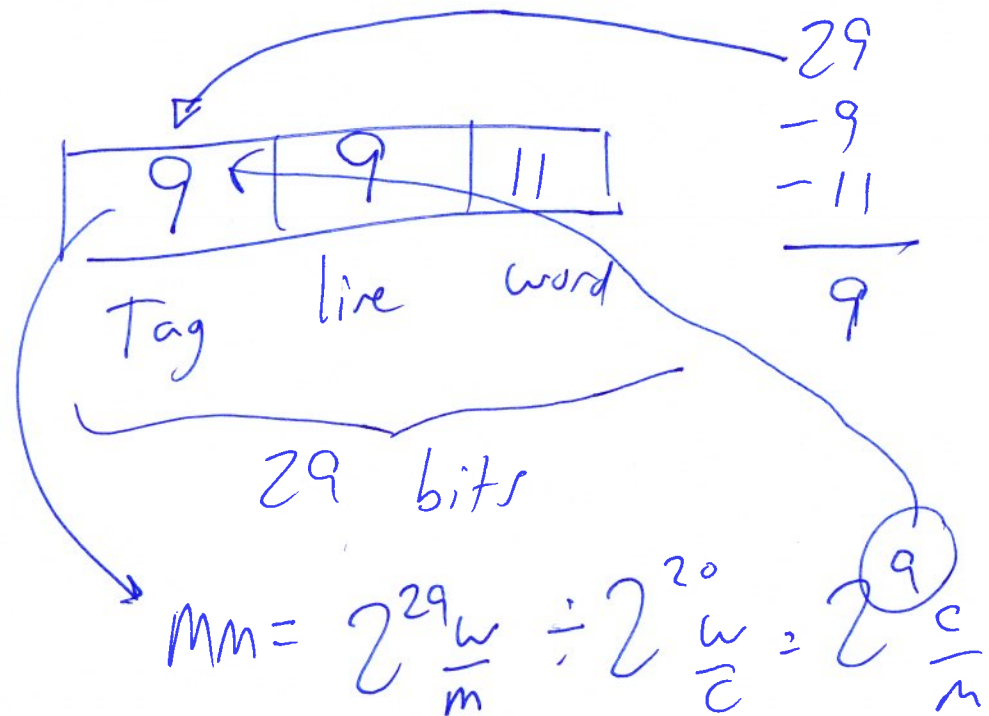 29
- 9
- 11
9
9 9 11
Tag line word
29 bits
MM = 2^29 w/m ÷ 2^20 w/c = 2^9 c/m